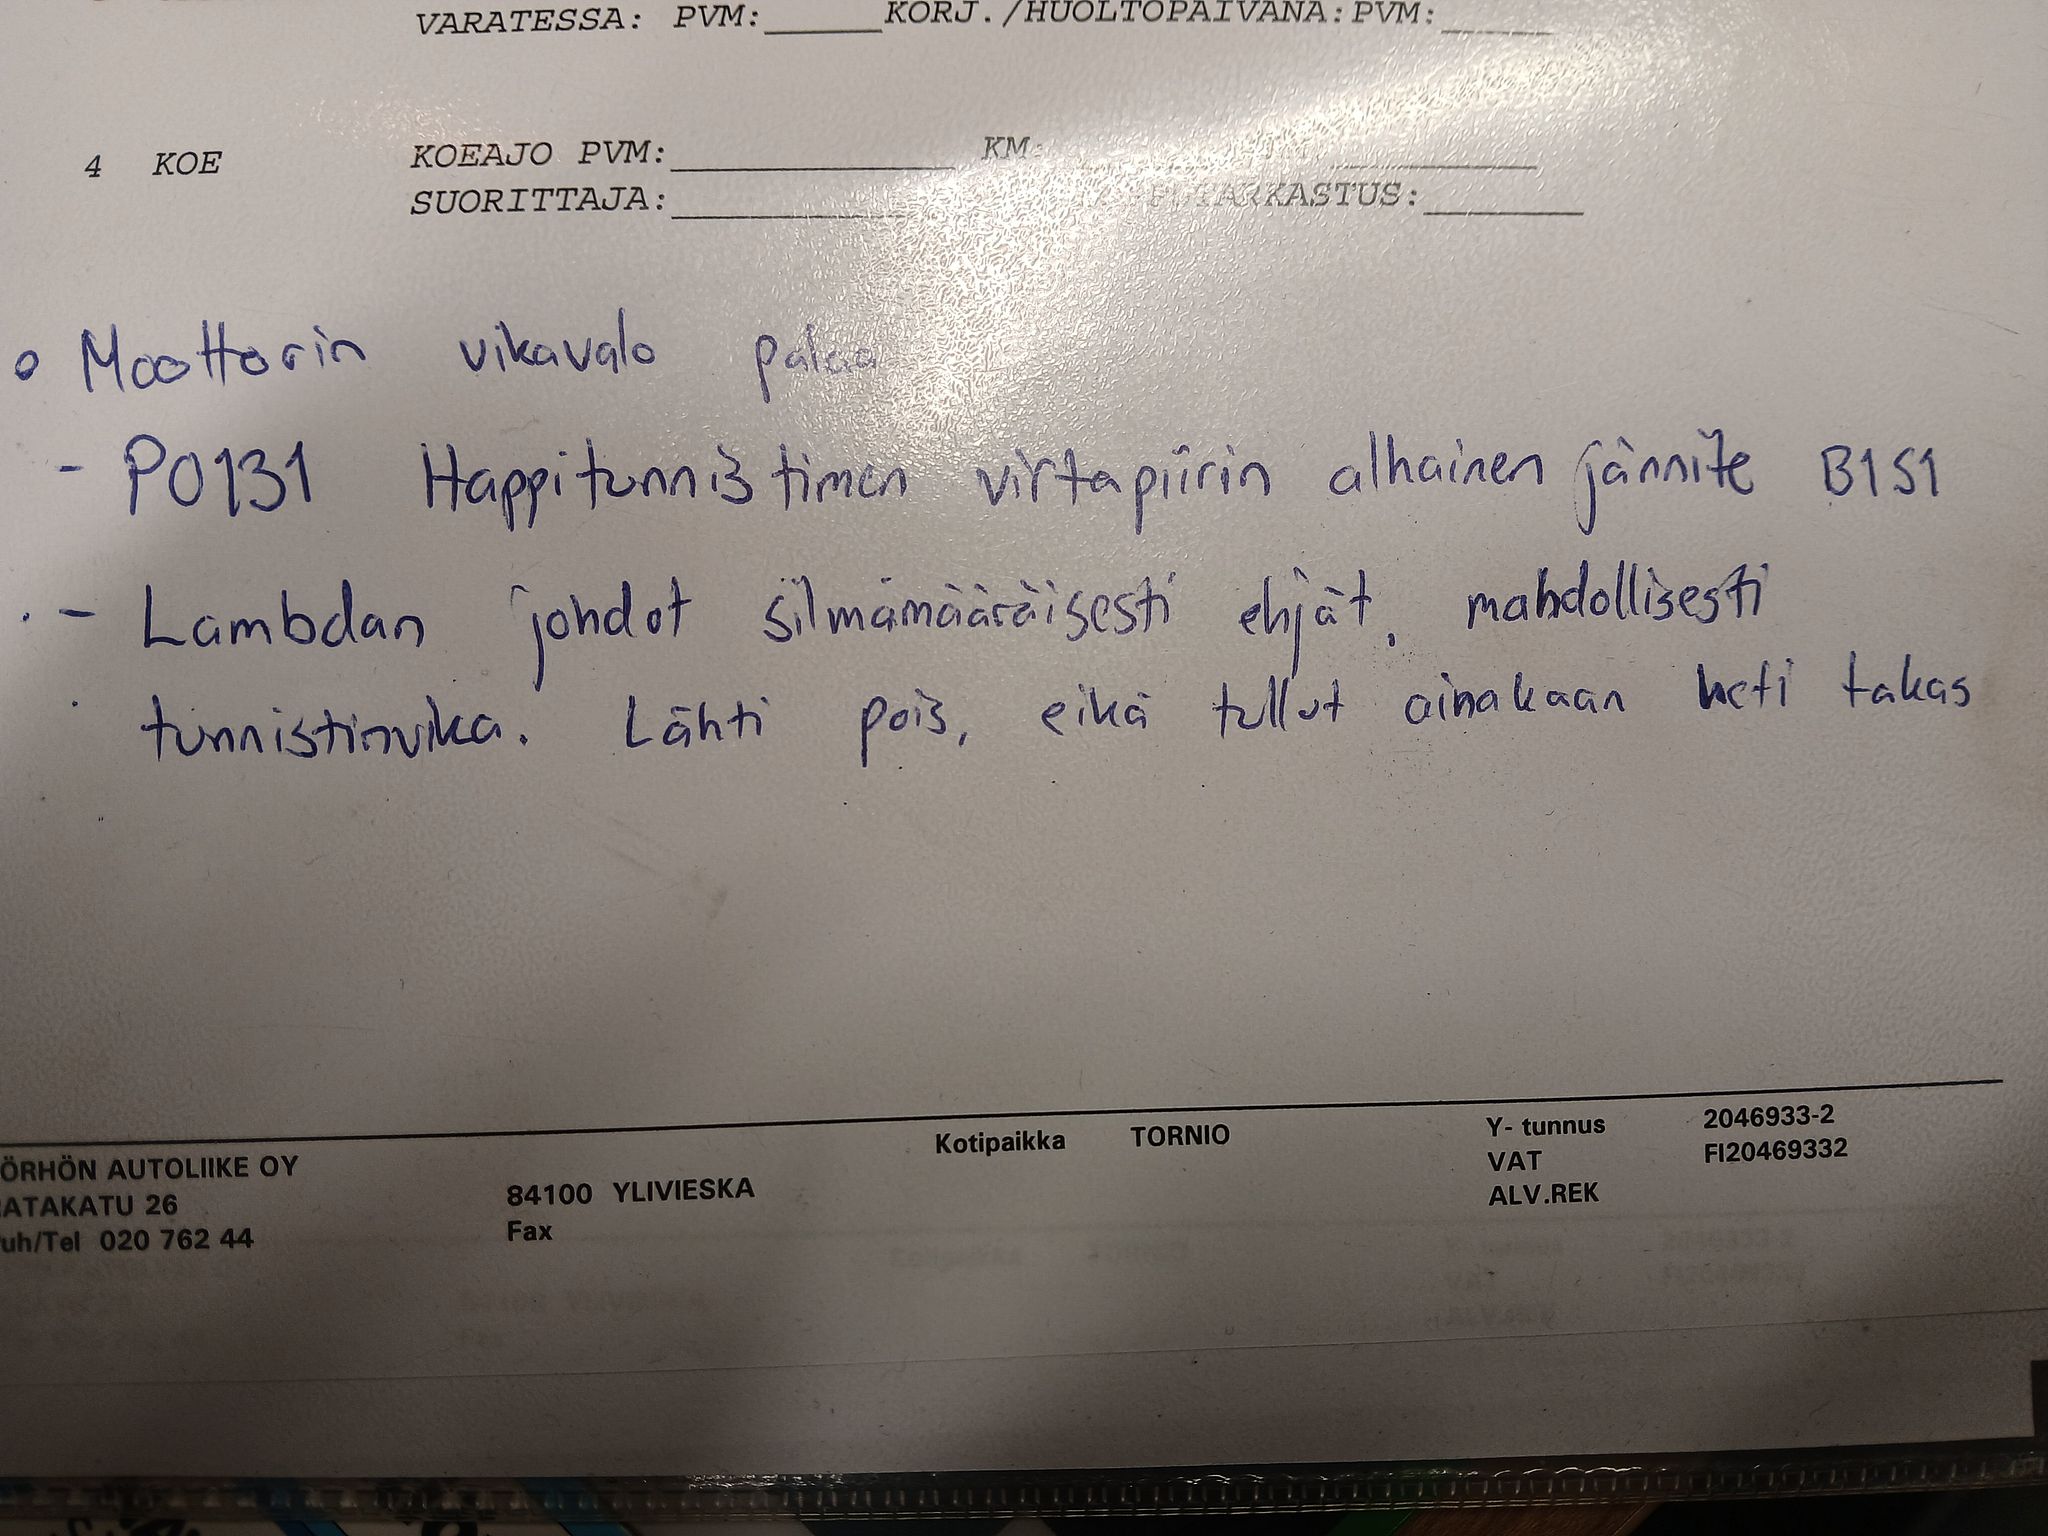 VARATESSA: PVM:______ KORJ./HUOLTOPÄIVÄNÄ: PVM:______
4 KOE KOEAJO PVM:______________ KM: __________
SUORITTAJA:____________ TARKASTUS:________
o Moottorin vikavalo palaa
- P0131 Happitunnistimen virtapiirin alhainen jännite B1S1
- Lambdan johdot silmämääräisesti ehjät, mahdollisesti
tunnistinvika. Lähti pois, eikä tullut ainakaan heti takas
ÖRHÖN AUTOLIIKE OY Kotipaikka TORNIO Y- tunnus 2046933-2
RATAKATU 26 84100 YLIVIESKA VAT FI20469332
Puh/Tel 020 762 44 Fax ALV.REK